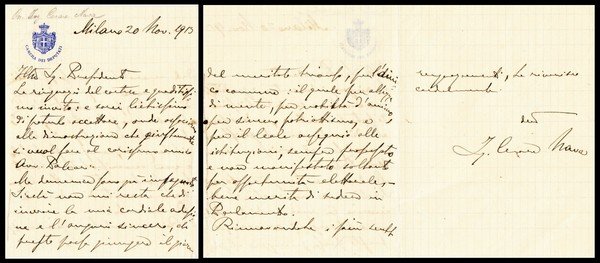 On. Ing. Cesare Nava
CAMERA DEI DEPUTATI
Milano 20 Nov. 1913
Ill.mo Sig. Presidente
La ringrazio del cortese e gradito
suo invito: e sarei lietissimo
di poterlo accettare, onde associarmi
alla dimostrazione che giustamente
si vuol fare al carissimo amico
Avv.
Ma domenica sono già impegnato
Sicché non mi resta che di
inviare la mia cordiale adesione
e l'augurio sincero, di
presto
del meritato trionfo, per l'amico
comune: il quale per altezza
di mente, per nobiltà d'animo
per sincero patriottismo, e
per il leale ossequio alle
istituzioni, sempre professato
e non manifestato soltanto
per opportunità elettorale,
bene merita di sedere in
Parlamento.
Rinnovandole i più sentiti
ringraziamenti, La riverisco
cordialmente.
dev
Ing. Cesare Nava